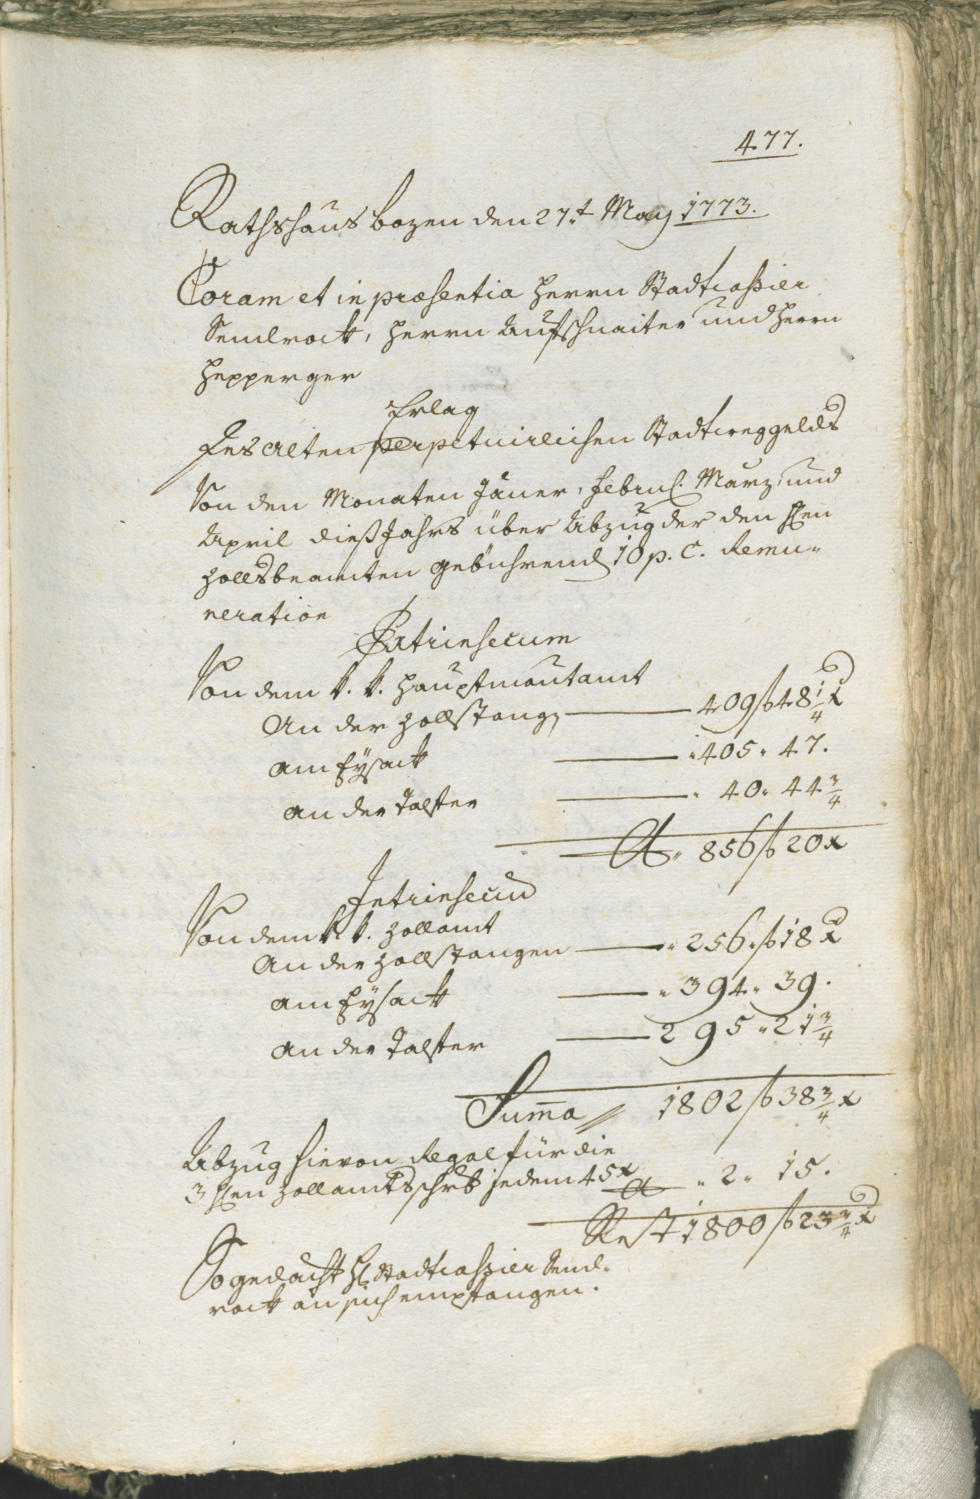 477.
Rathshaus bozen den 27.t May 1773.
Coram et in præsentia herrn Stadtcassier
Sendlrock, herrn Aufschnaiter und herrn
hepperger
Erlag
des alten perpetuirlichen Stadtweggelds
Von den Monaten Jäner, Febru: März, und
April dieß Jahrs über Abzug der den hen
zollsbeamten gebührend 10 p. C. Remu-
neration
Extrinsecum
Von dem k. k. hauptmautamt
An der zollstang 409 f 48 1/4 x
am Eysack 405 " 47.
an der Talfer " 40 " 44 3/4
" 856 f 20 x
Intrinsecum
Von dem k. k. zollamt
An der zollstangen " 256 " f 18 x
am Eysack " 394 " 39.
an der Talfer 295 " 21 3/4
Summa // 1802 f 38 3/4 x
Abzug hievon Regal für die
3 hen zollamtsschrb jedem 45 x " 2 " 15.
Rest 1800 f 23 3/4 x
So gedacht H: Stadtcassier Sendl-
rock an sich empfangen.